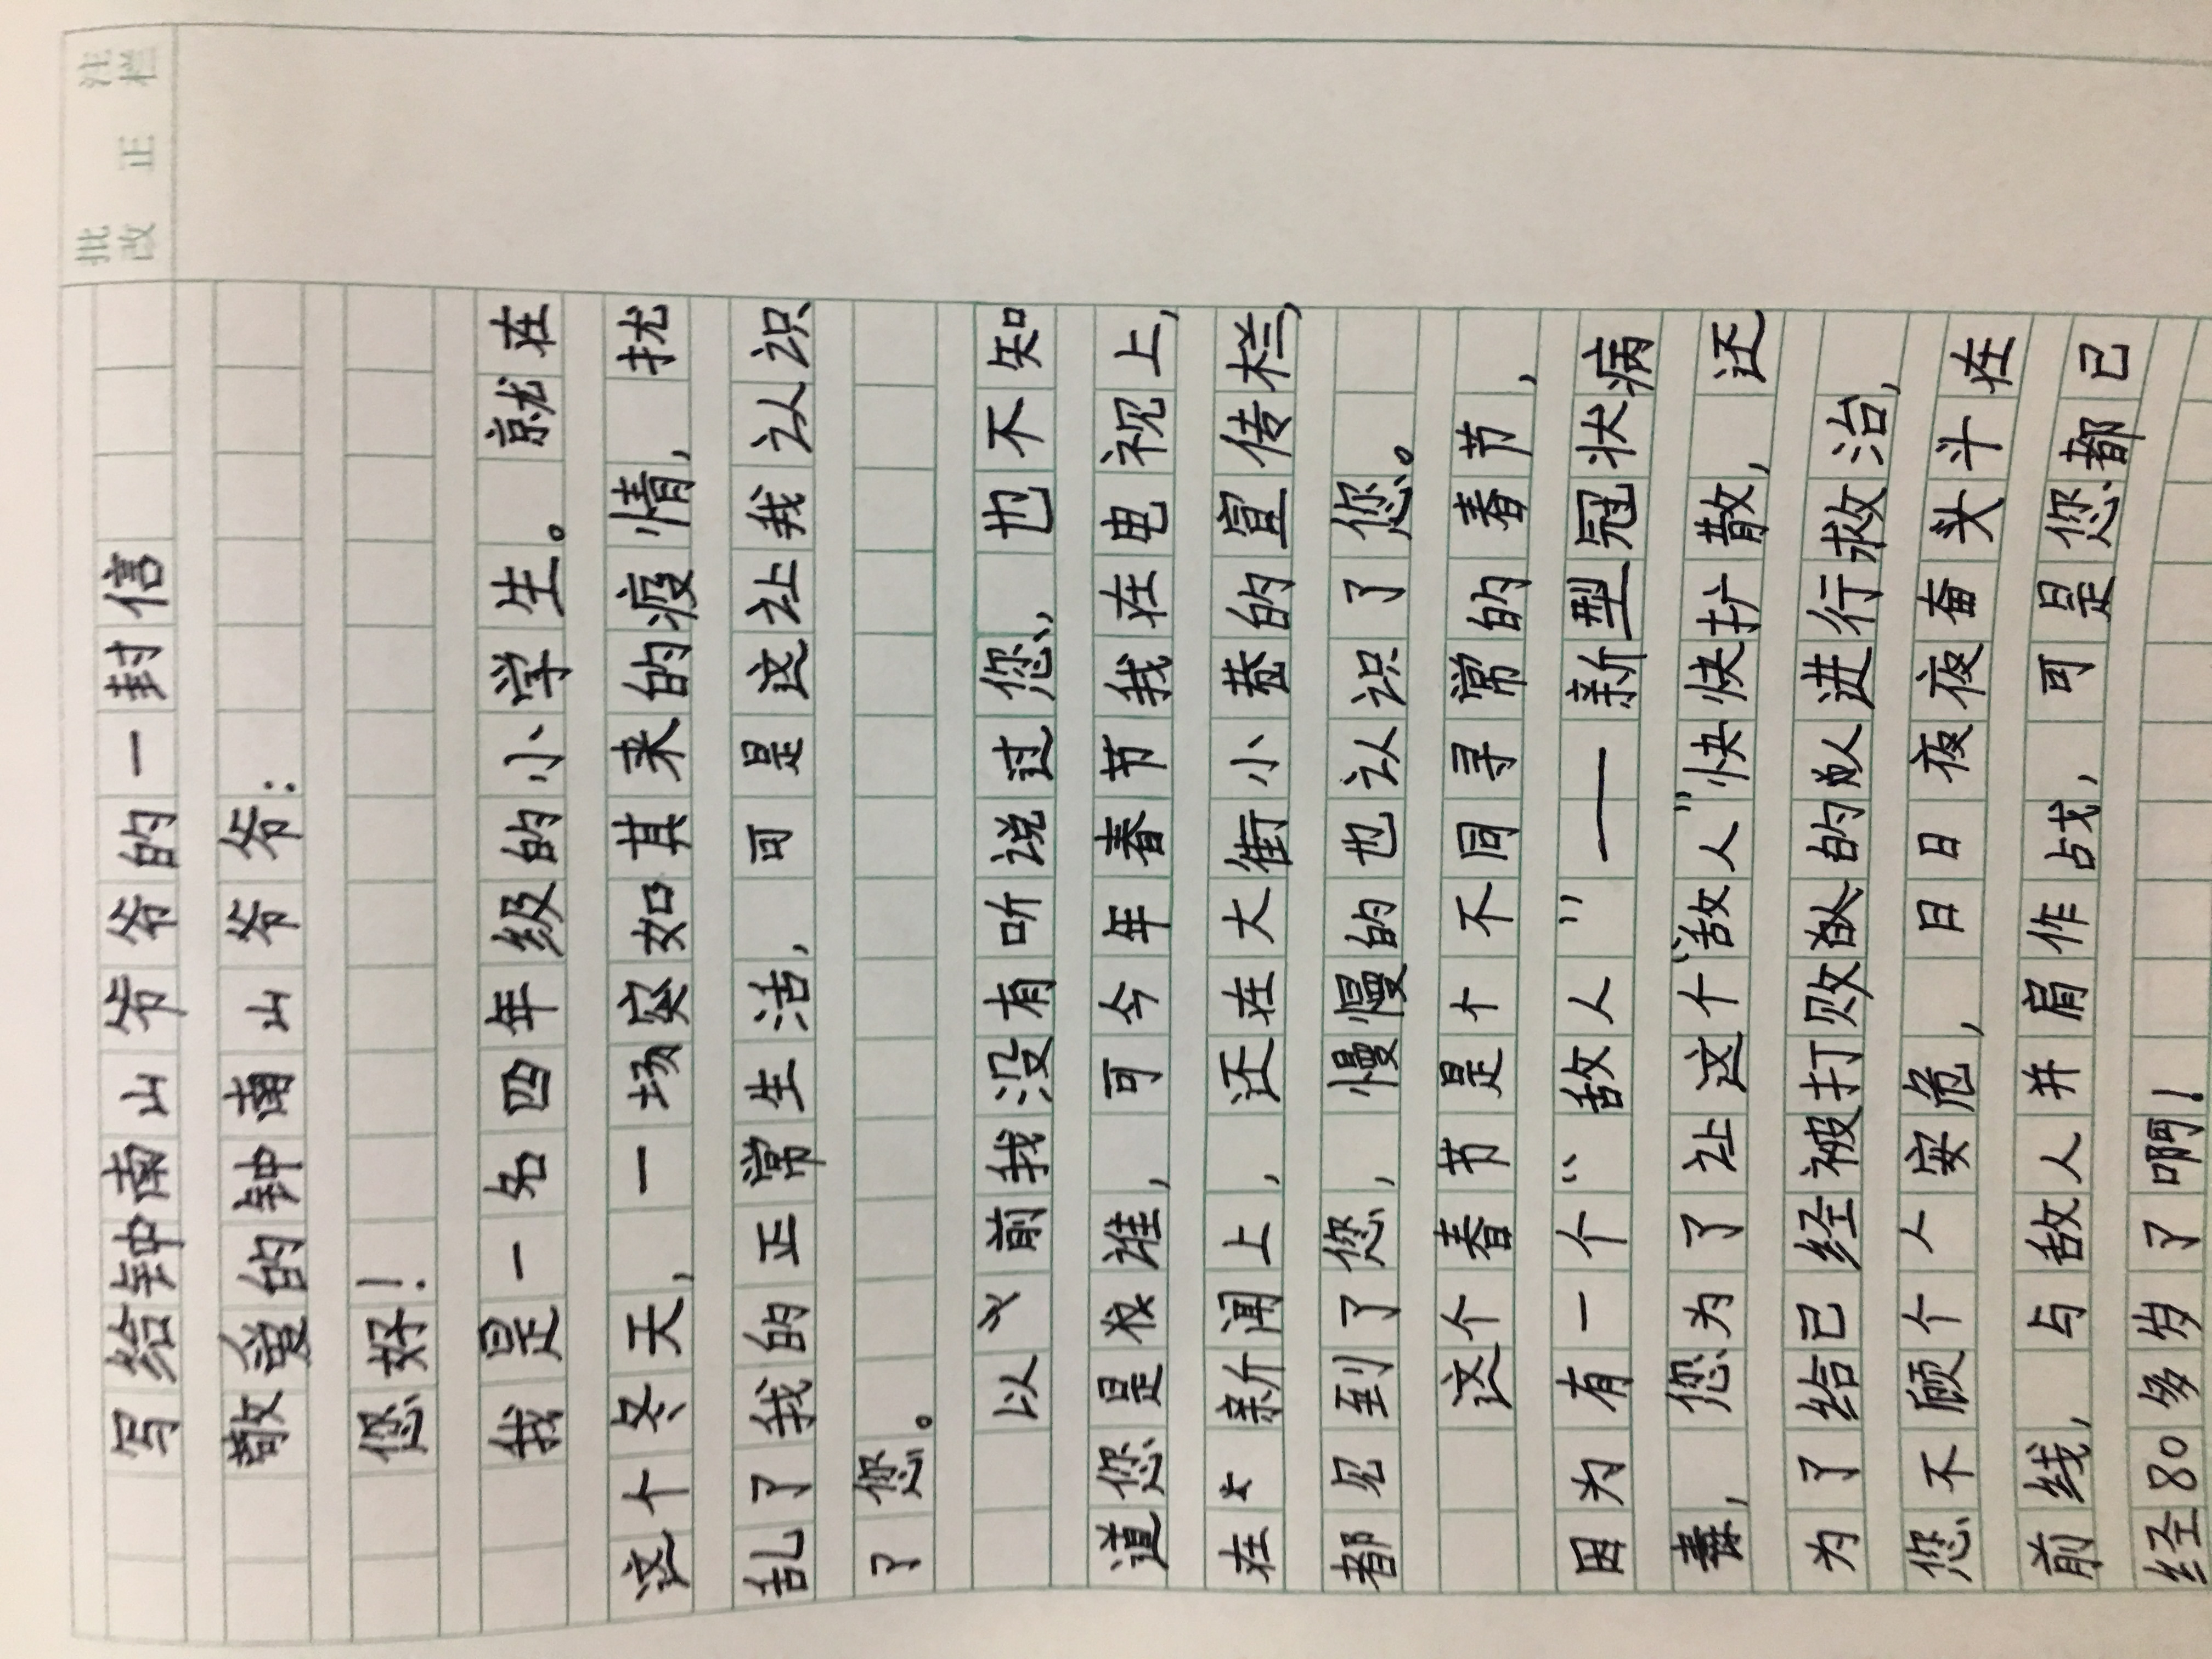 批改
正
注栏
写给钟南山爷爷的一封信
敬爱的钟南山爷爷:
您好!
我是一名四年级的小学生。就在
这个冬天,一场突如其来的疫情,扰
乱了我的正常生活,可是这让我认识
了您。
以前我没有听说过您,也不知
道您是谁,可今年春节我在电视上,
在新闻上,还在大街小巷的宣传栏,
都见到了您,慢慢的也认识了您。
这个春节是个不同寻常的春节,
因为有一个“敌人”——新型冠状病
毒,您为了让这个“敌人”快快扩散,还
为了给已经被打败的人进行救治,
您不顾个人安危,日日夜夜奋斗在
前线,与敌人并肩作战,可是您都已
经80多岁了啊!